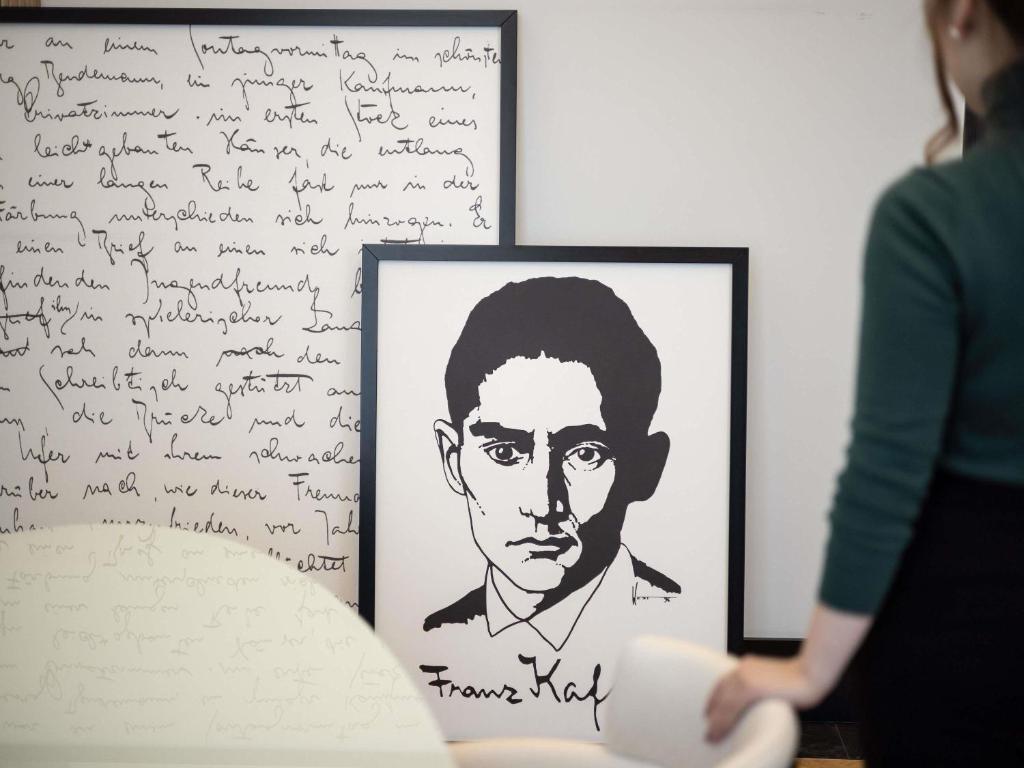 r an einem Sontagvormittag im schönsten
g Bendemann, ein junger Kaufmann,
Privatzimmer im ersten Stock eines
leichtgebauten Häuser, die entlang
einer langen Reihe fast nur in der
Färbung unterschieden sich hinzogen. Er
einen Brief an einen sich
findenden Jugendfreund
ihn in spielerischer
sah dann nach den
Schreibtisch gestützt
die Brücke und die
Ufer mit ihrem schwachen
rüber nach, wie dieser Freund
frieden, vor Jah
chtet
Franz Kaf